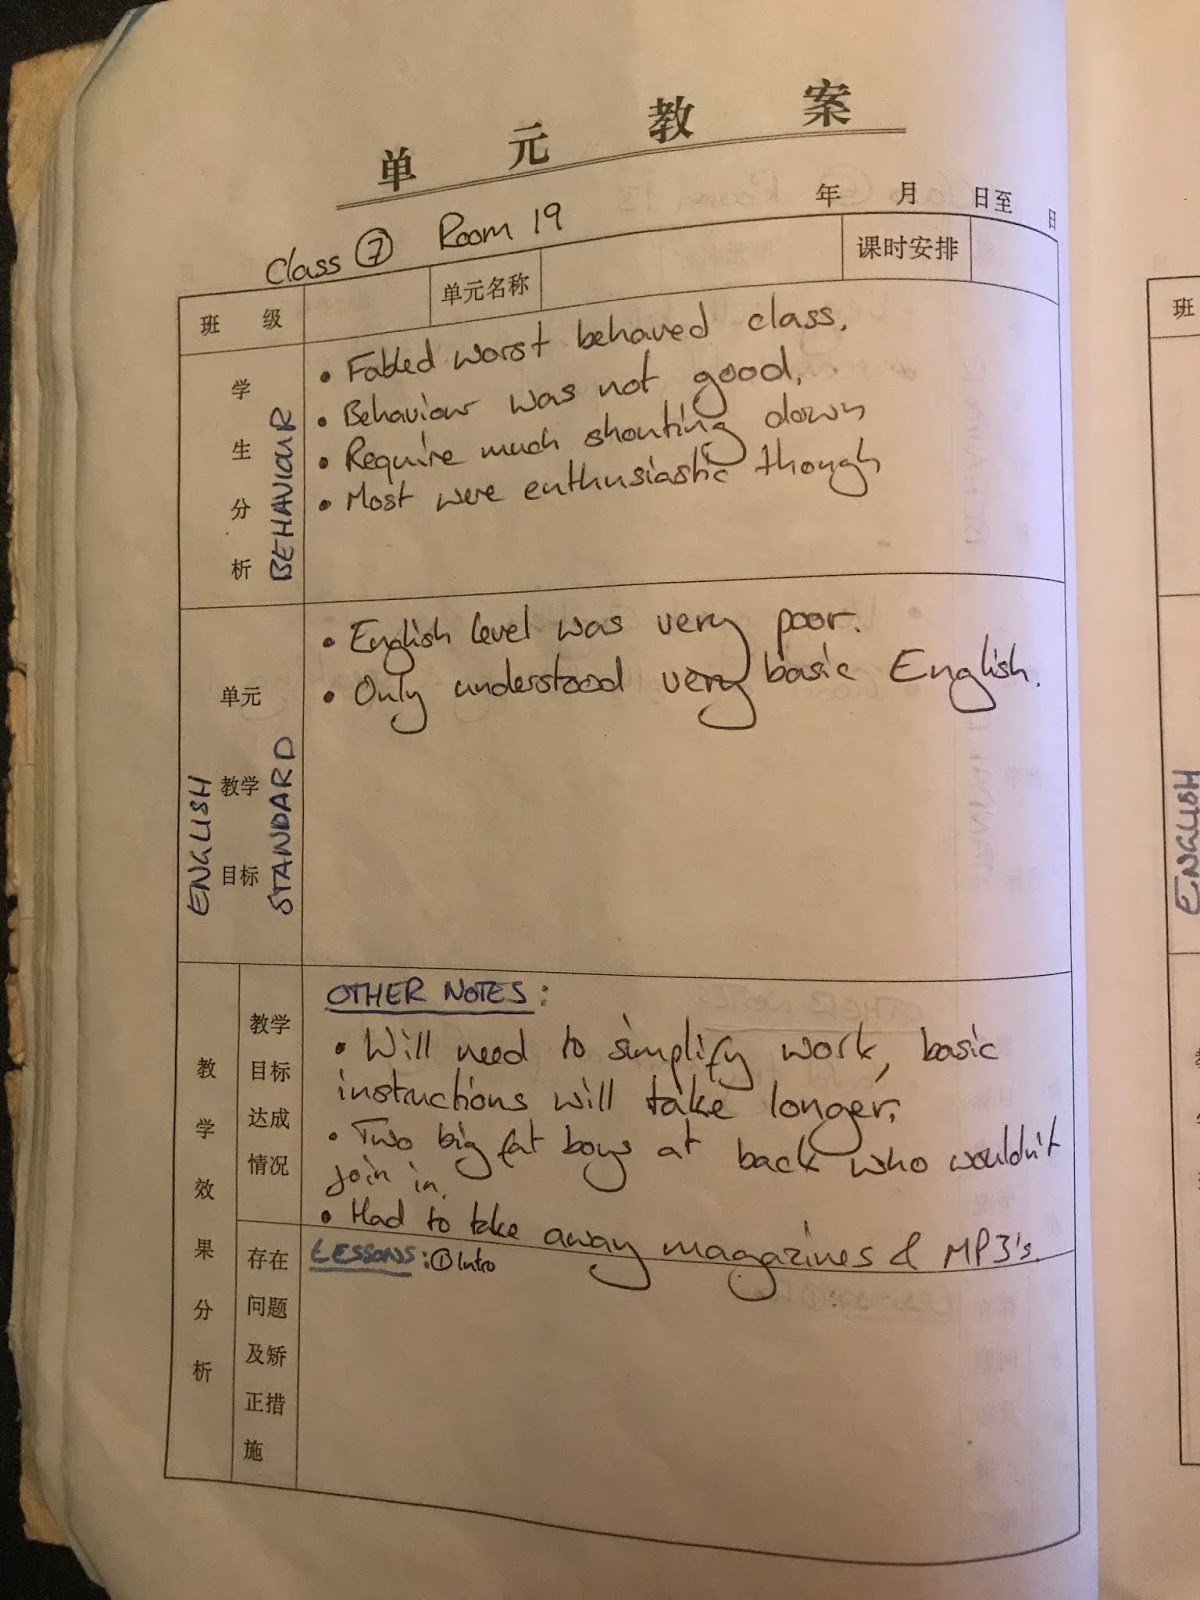 单元教案
年 月 日至 日
Class ⑦ Room 19
班级
单元名称
课时安排
学生分析
BEHAVIOUR
• Fabled worst behaved class.
• Behaviour was not good.
• Require much shouting down
• Most were enthusiastic though
单元
教学
目标
ENGLISH
STANDARD
• English level was very poor.
• Only understood very basic English.
教学效果分析
教学
目标
达成
情况
OTHER NOTES:
• Will need to simplify work, basic
instructions will take longer.
• Two big fat boys at back who wouldn't
join in.
• Had to take away magazines & MP3's.
存在
问题
及矫
正措
施
LESSONS: ① Intro
班
ENGLISH